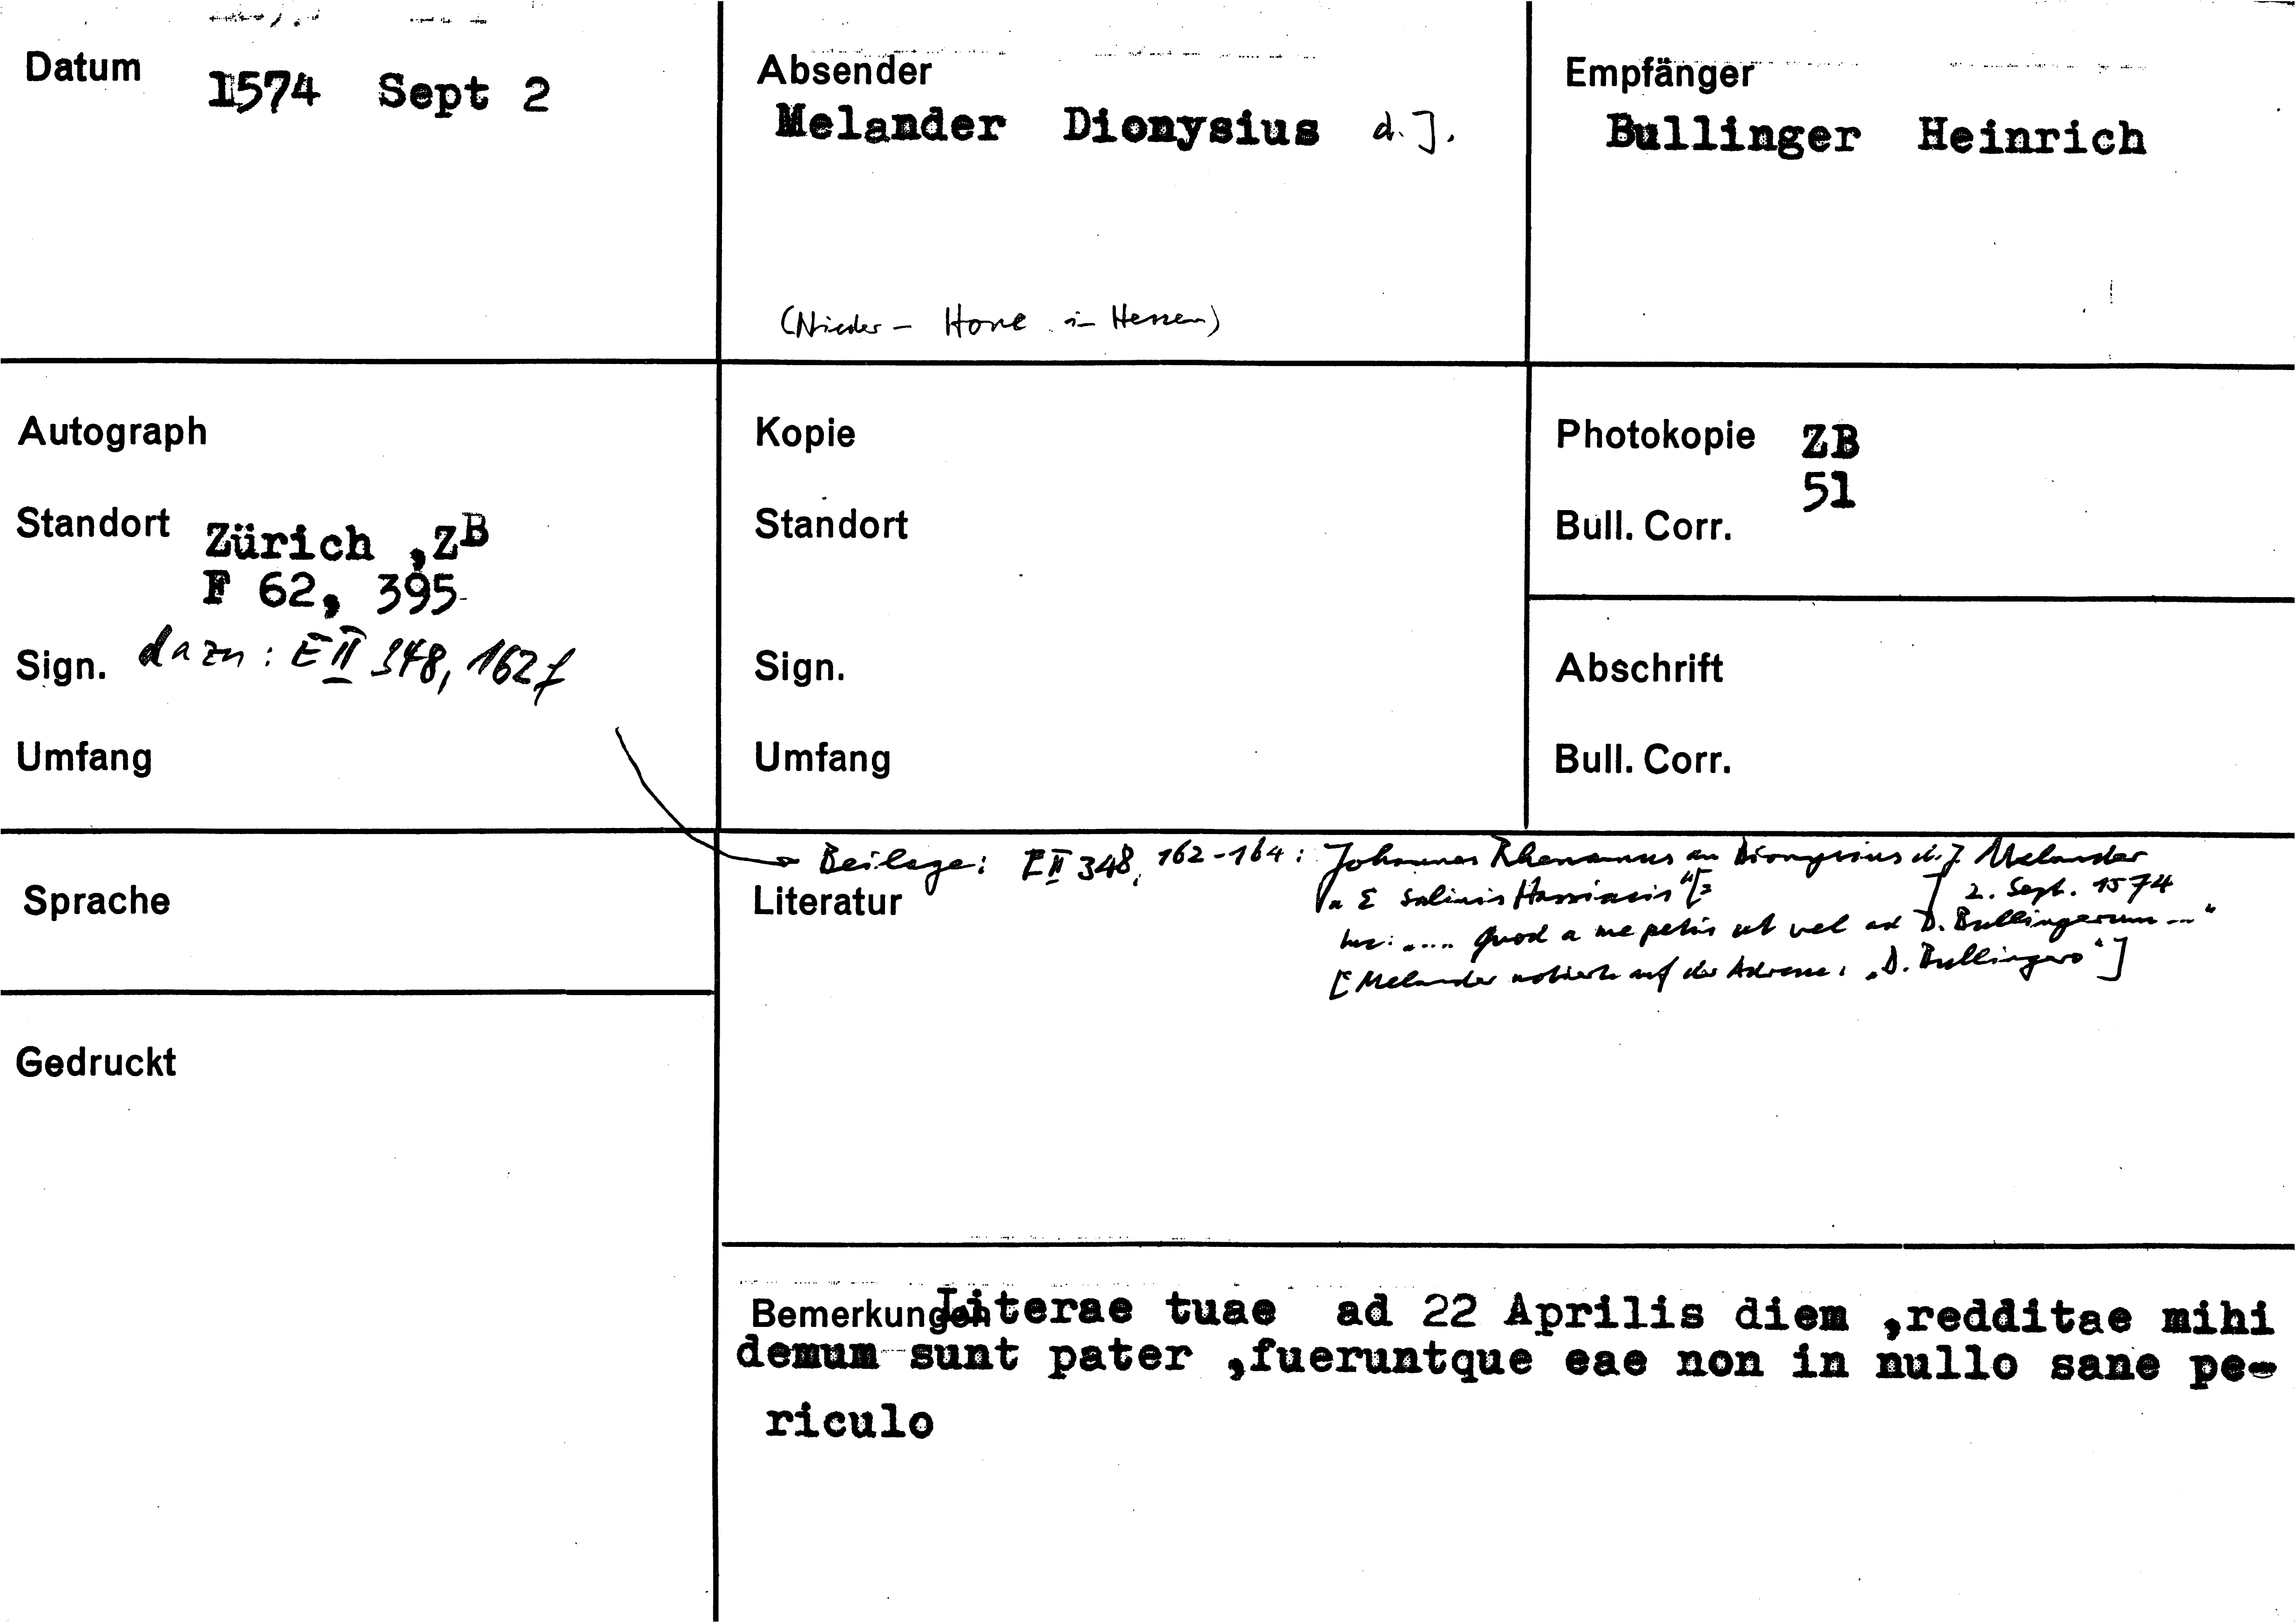 Datum 1574 Sept 2
Absender
Melander Dionysius d. J.
(Nieder-Hone in Hessen)
Empfänger
Bullinger Heinrich
Autograph
Standort Zürich ,ZB
F 62, 395
Sign. dazu: E II 348, 162f
Umfang
Kopie
Standort
Sign.
Umfang
Photokopie ZB
51
Bull. Corr.
Abschrift
Bull. Corr.
Sprache
Gedruckt
Beilage: E II 348, 162-164: Johannes Rhenanus an Dionysius d. J. Melander
Literatur
"E Salinis Hassiacis" [= ] 2. Sept. 1574
Inc: "... Quod a me petis ut vel ad D. Bullingerum ..."
[Melander notierte auf der Adresse: "D. Bullingero"]
Bemerkungen Literae tuae ad 22 Aprilis diem ,redditae mihi
demum sunt pater ,fueruntque eae non in nullo sane pe-
riculo